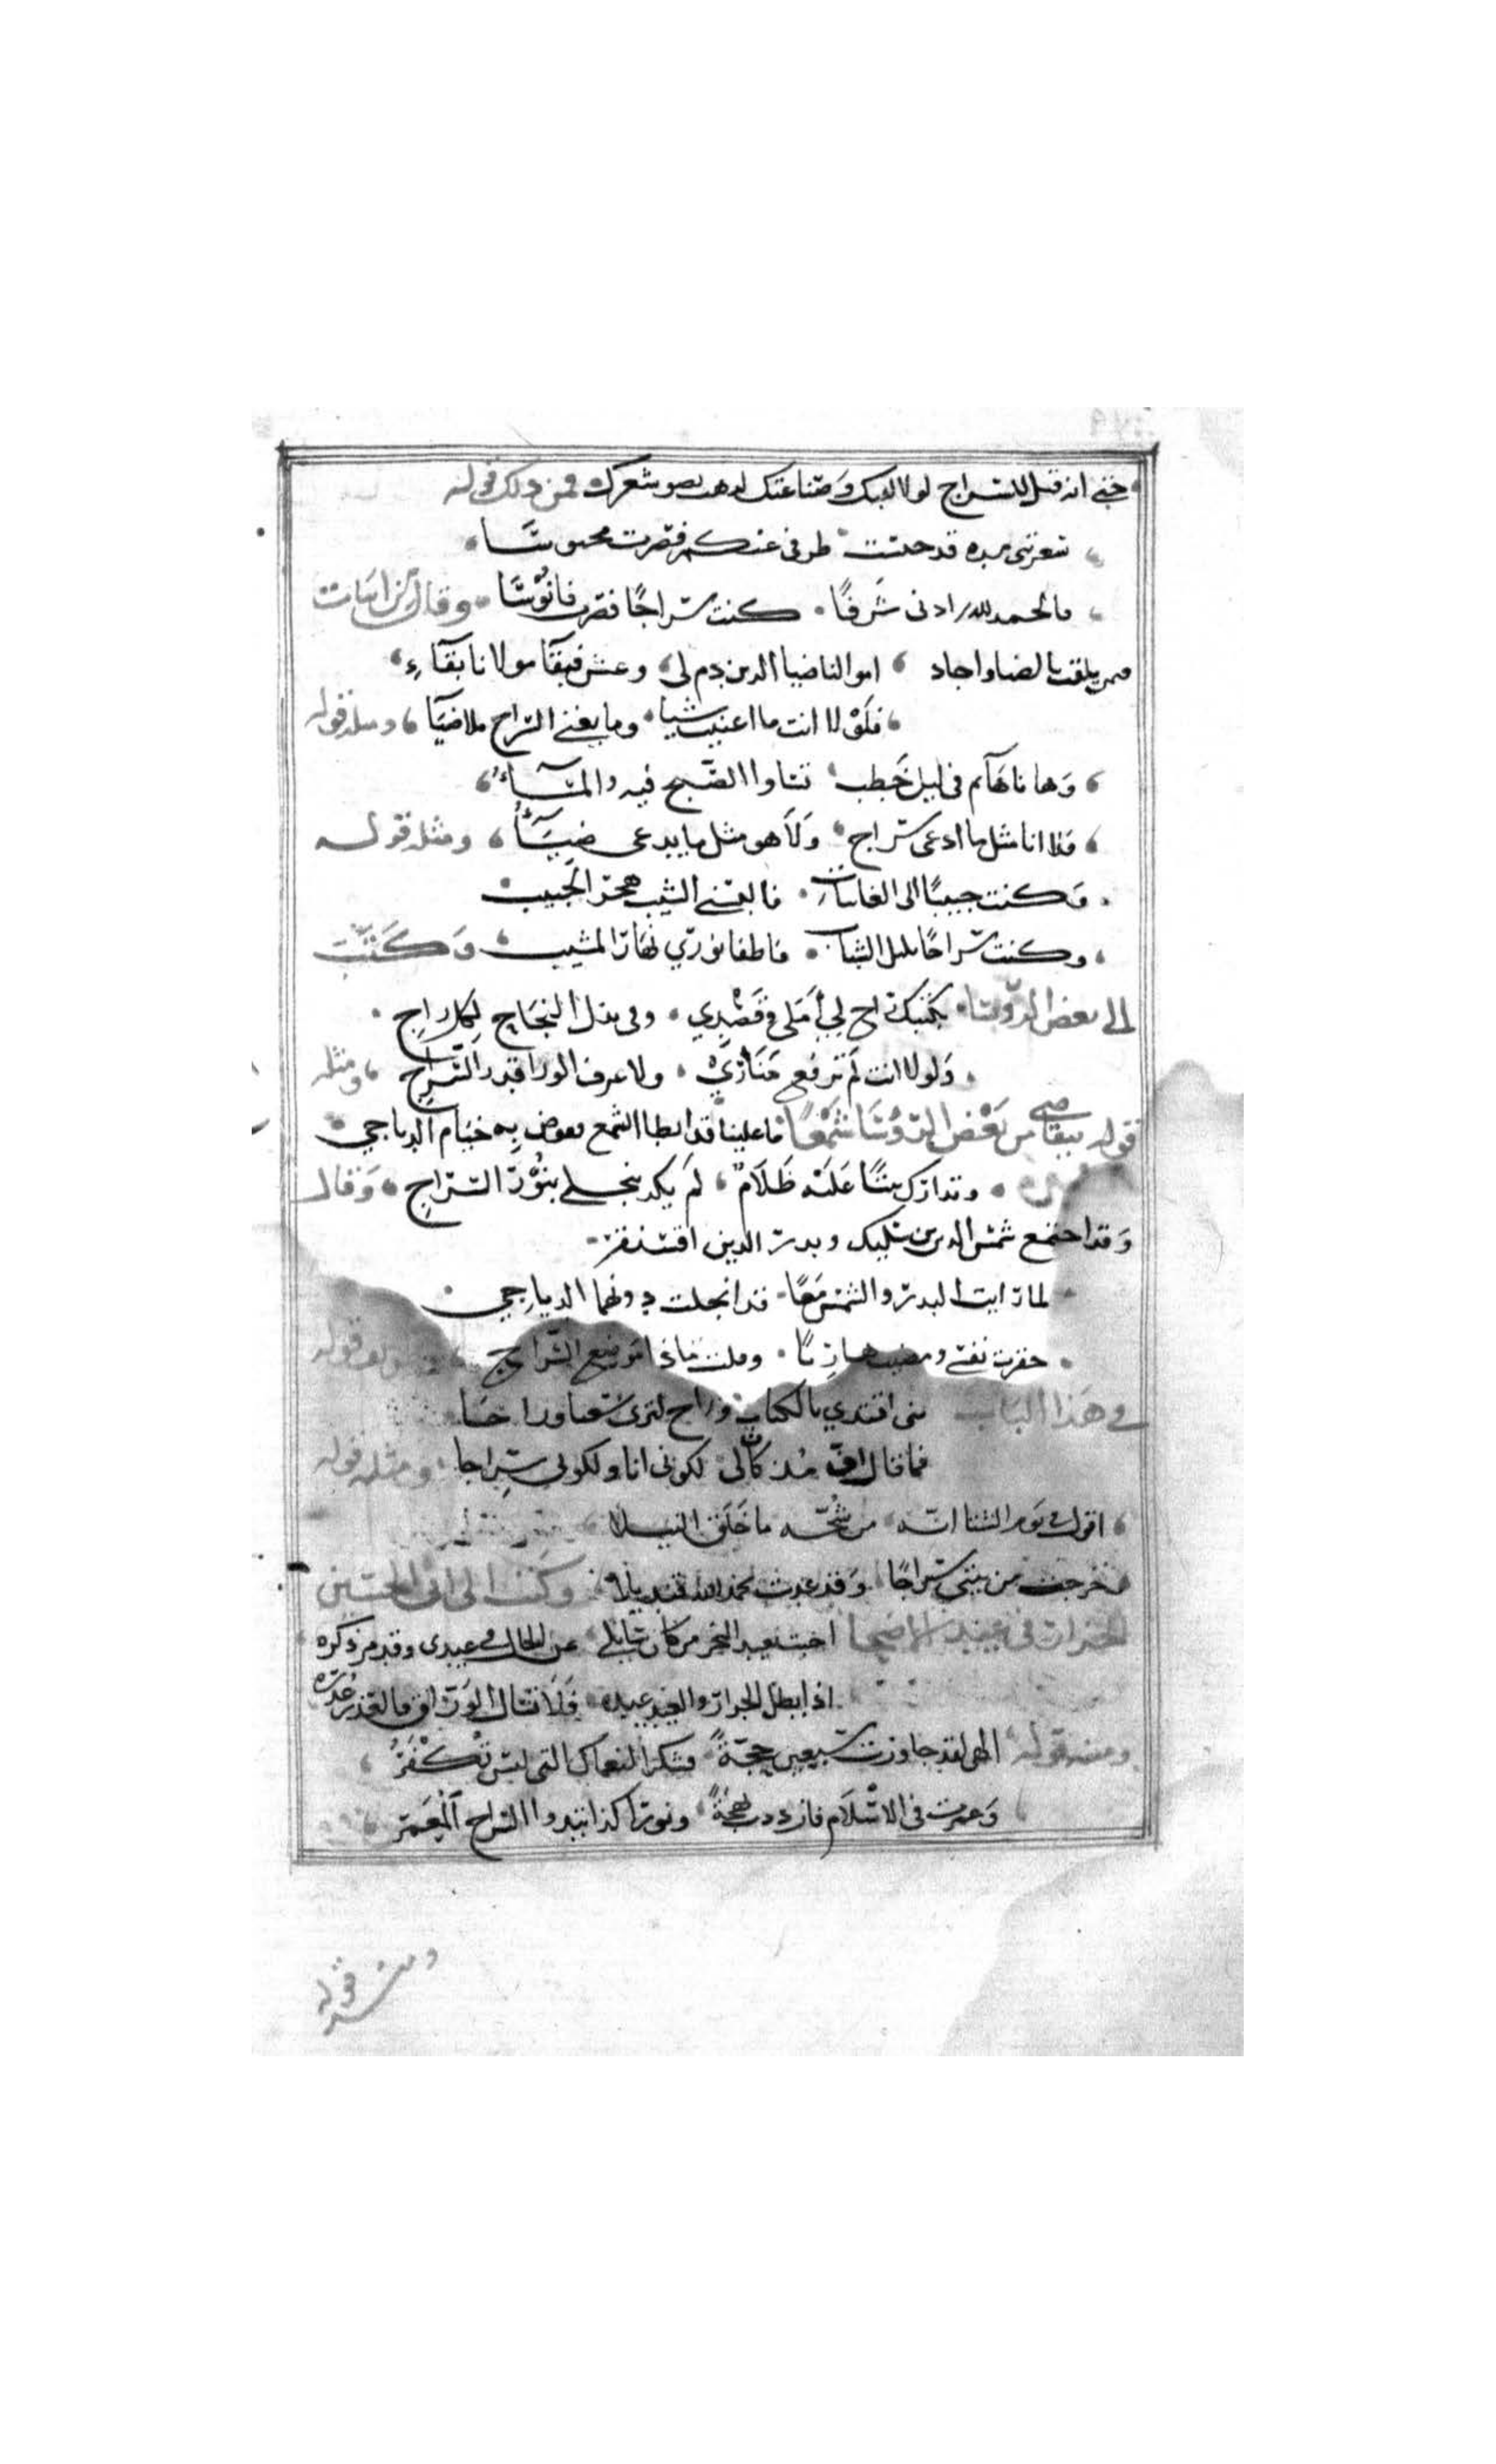 حتى انه قيل للسراج لولا لقبك وصناعتك لذهب نصف شعرك فمن ذلك قوله
قد حبست طرفي عنكم فصرت محبوسا
فالحمد لله زادني شرفا كنت سراجا فصرت فانوسا وقال من ابيات
فيمن يلقب بالضيا واجاد امولانا ضيا الدين دم لي وعش فبقا مولانا بقاء
فلولا انت ما اغنيت شيا وما يغني السراج بلا ضيا ومثله قوله
وها ناهآئم في ليل خطب تساوا الصبح فيه والمسآء
فلا انا مثل ما ادعى سراج ولا هو مثل ما يدعى ضيآء ومثله قوله
وكنت حبيبا الى الغانيات فالبسني الشيب هجر الحبيب
وكنت سراجا بليل الشباب فاطفا نوري نهار المشيب وكتب
الى بعض الروسا بكتبك راج لي املي وقصدي وفي يدك النجاح لكل راج
ولولا انت لم ترفع مناري ولا عرف الورا قدر السراج ومثله
قوله يتقاضى من بعض الروسا شمعا ما علينا قد ابطا الشمع فوض به خيام الدياجي
وتدارك بيتا عليه ظلام لم يكد ينجلي بنور السراج وقال
وقد اجتمع شمس الدين بن سليك وبدر الدين اقسنقر
لما رايت البدر والشمس معا قد انجلت دونهما الدياجي
حقرت نفسي ومضيت هاربا وقلت ماذا موضع السراج قوله
في هذا الباب بني اقتدي بالكتاب وراح لبري سعيا وراجا
فما قال اف مذ كان لي لكوني ابا ولكوني سراجا ومثله قوله
اقول في يوم الشتا انه من شحه ما خلق النيلا
فخرجت من بيتي سراجا وقد عدت بحمد الله قنديلا وكتب الى ابي الحسين
الجزار في عيد الاضحا عن الحال في عيدي وقد مر ذكره
اذا بطل الجزار والعيد عيده فلا تسال الوراق فالعذر عذره
ومنه قوله الهي لقد جاوزت سبعين حجة فشكرا لنعماك التي ليس تكفر
وعمرت في الاسلام فازددت بهجة ونورا كذا تبدوا السراج المعمر
ومنه قوله